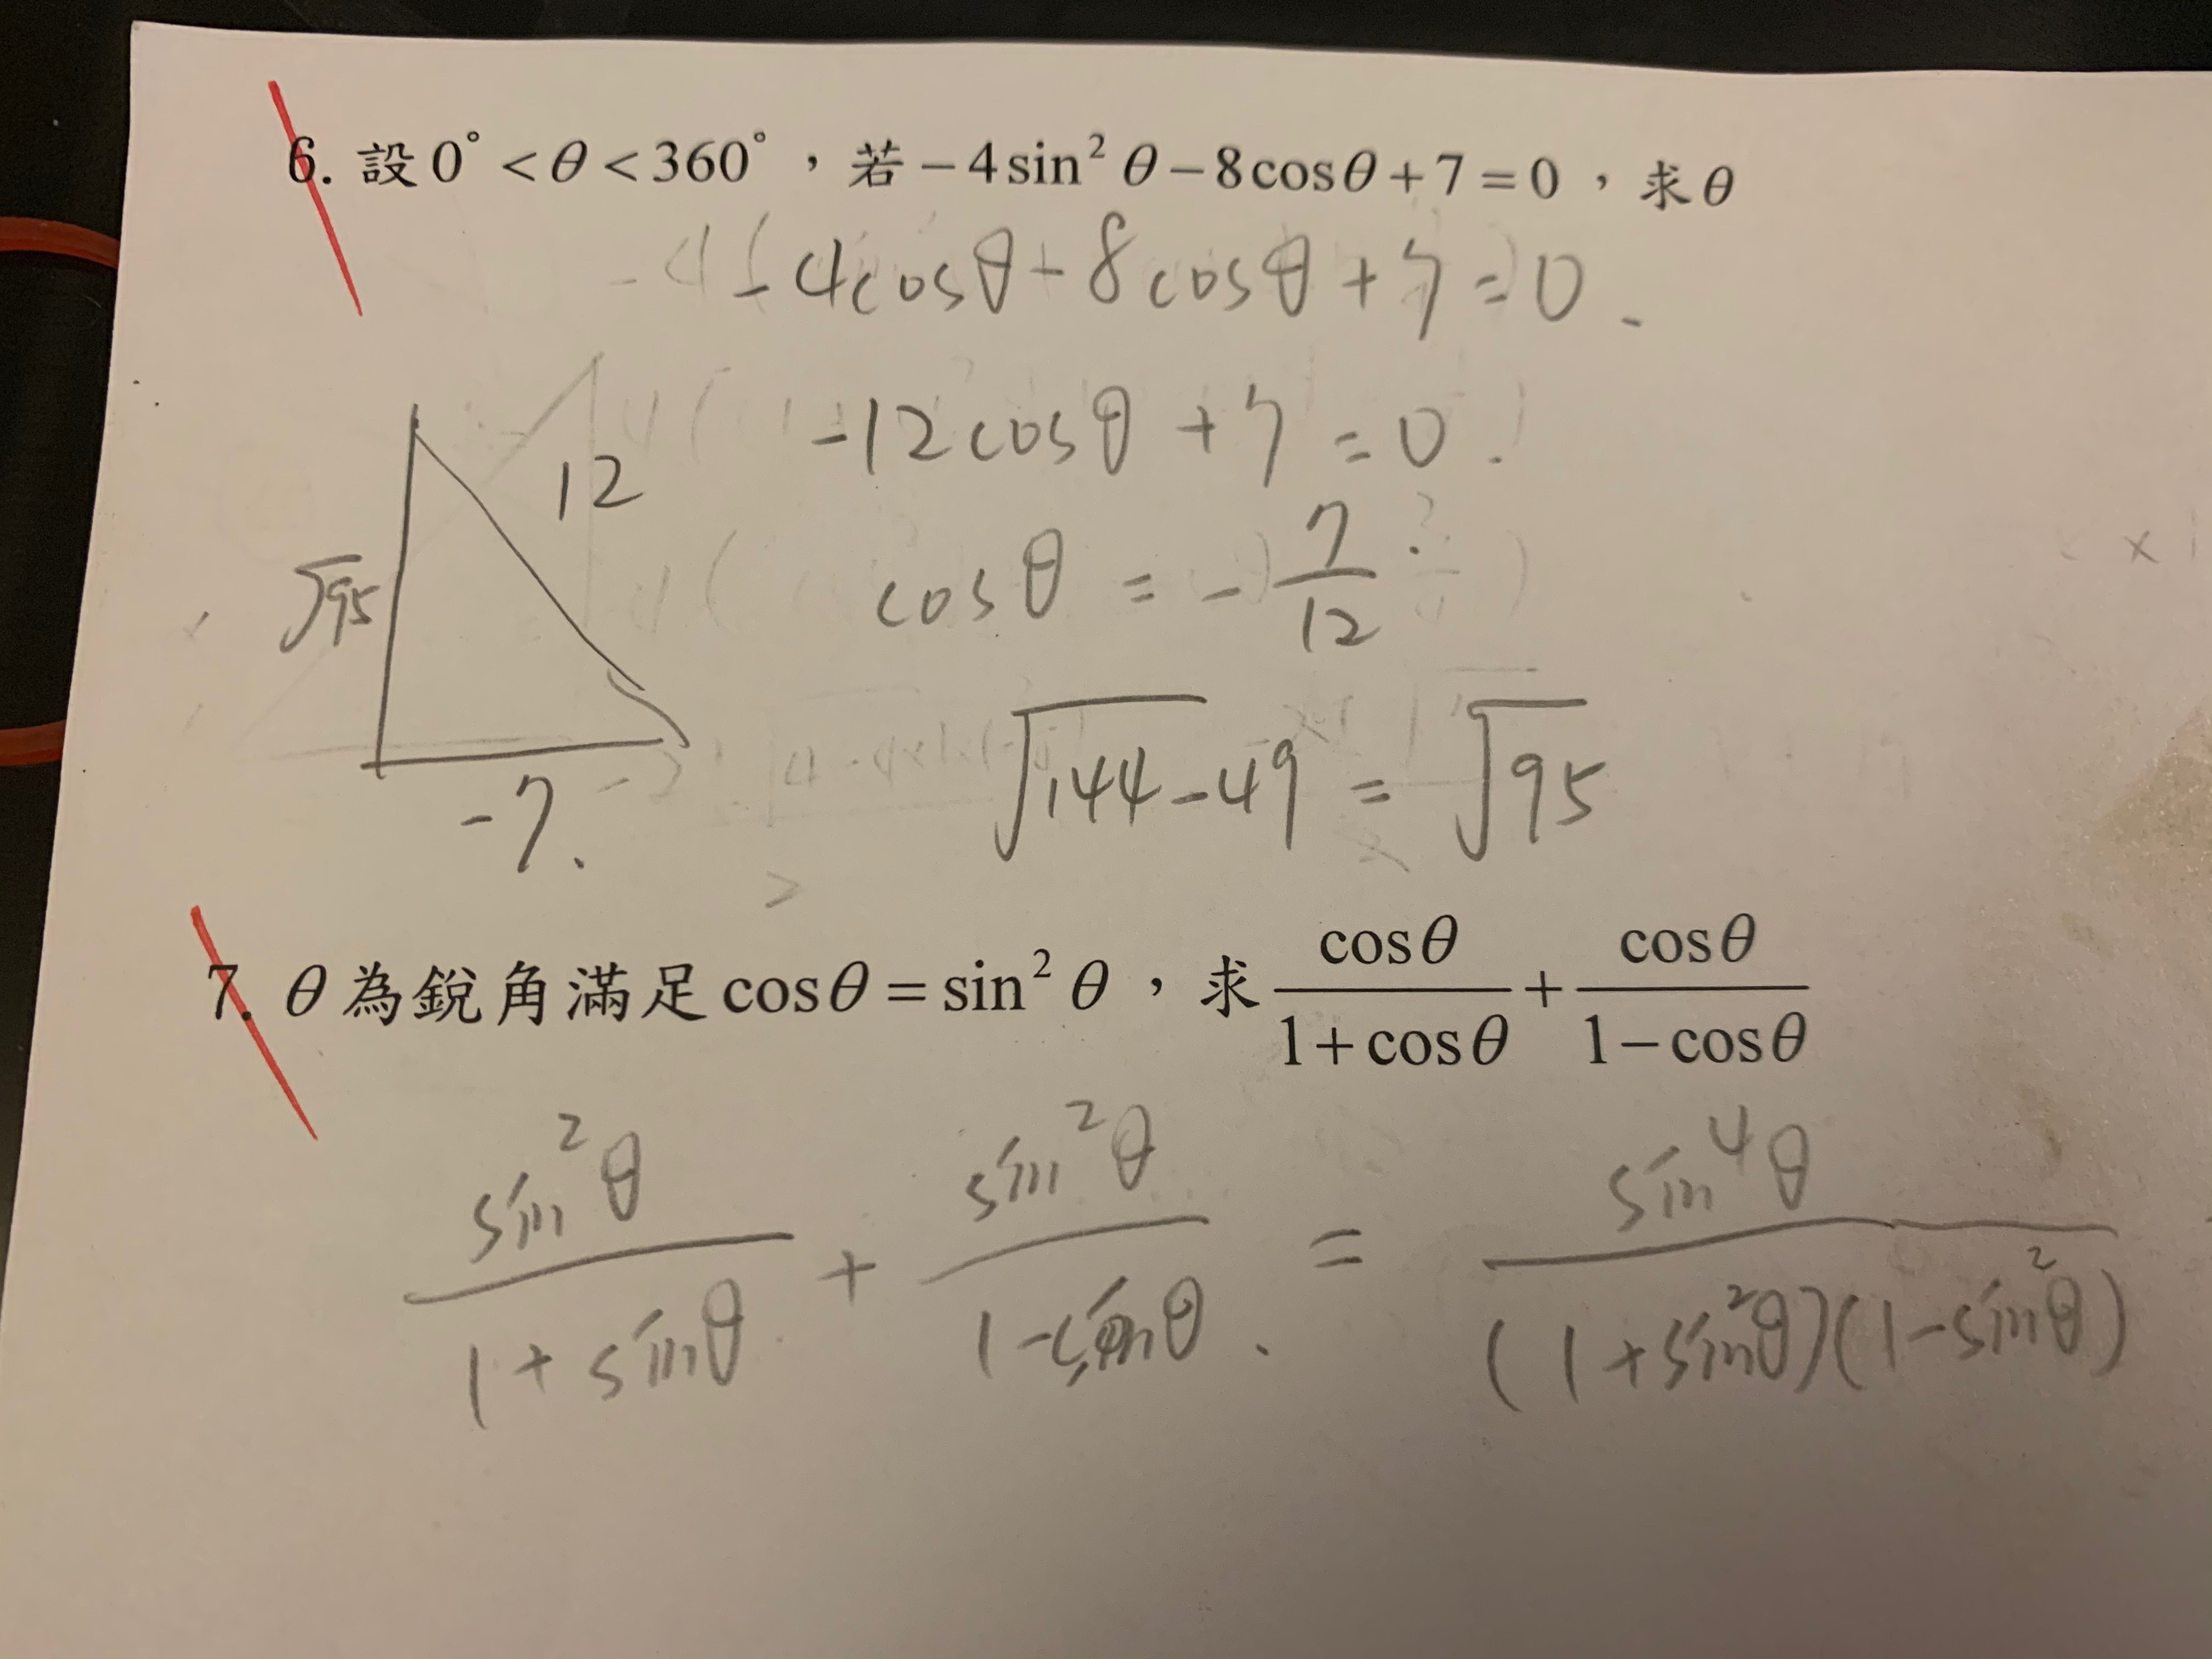 6. 設 0° < θ < 360°，若 −4sin² θ − 8cosθ + 7 = 0，求 θ
-4cosθ - 8cosθ + 7 = 0.
-12cosθ + 7 = 0.
12
cosθ = - 7/12
√95
√144-49 = √95
-7.
7. θ 為銳角滿足 cosθ = sin² θ，求 cosθ/(1+cosθ) + cosθ/(1−cosθ)
sin²θ/(1+sinθ) + sin²θ/(1-sinθ). = sin⁴θ/((1+sin²θ)(1-sin²θ))